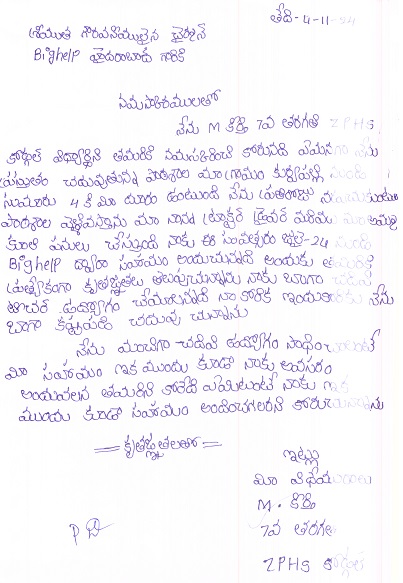 తేది - 4-11-24
శ్రీయుత గౌరవనీయులైన ఛైర్మన్
Bighelp హైదరాబాదు గారికి
నమస్కారములతో
నేను M కీర్తి 7వ తరగతి ZPHS
విద్యార్థిని తమరికి నమస్కరించి కోరునది ఏమనగా నేను
ప్రస్తుతం చదువుతున్న పాఠశాల మా గ్రామం నుండి
సుమారు 4 కి మీ దూరం ఉంటుంది నేను ప్రతిరోజు
పాఠశాల వెళ్ళివస్తాను మా నాన్న ట్రాక్టర్ డ్రైవర్ మరియు మా అమ్మ
కూలి పనులు చేస్తుంది నాకు ఈ సంవత్సరం జులై-24 నుండి
Bighelp ద్వారా సహాయం అందుచున్నది అందుకు తమరికి
ప్రత్యేకంగా కృతజ్ఞతలు తెలుపుచున్నాను నాకు బాగా చదివి
టీచర్ ఉద్యోగం చేయాలన్నది నా కోరిక ఇందుకొరకు నేను
బాగా కష్టపడి చదువు చున్నాను
నేను మంచిగా చదివి ఉద్యోగం సాధించాలంటే
మీ సహాయం ఇక ముందు కూడా నాకు అవసరం
అందువలన తమరిని కోరేది ఏమిటంటే నాకు ఇక
ముందు కూడా సహాయం అందించగలరని కోరుచున్నాను
కృతజ్ఞతలతో
ఇట్లు
మీ విధేయురాలు
M. కీర్తి
7వ తరగతి
ZPHS